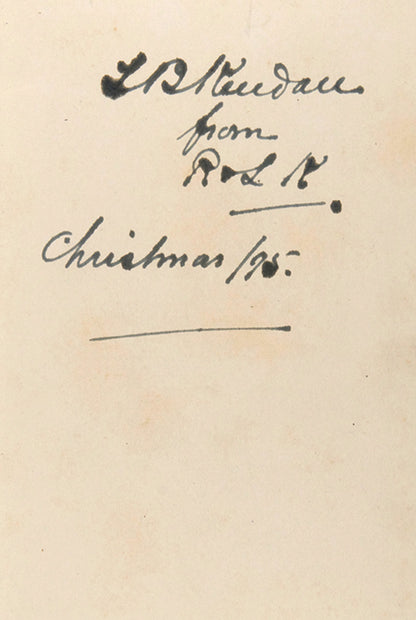 L B Kendall
from
R & L K
Christmas /95.